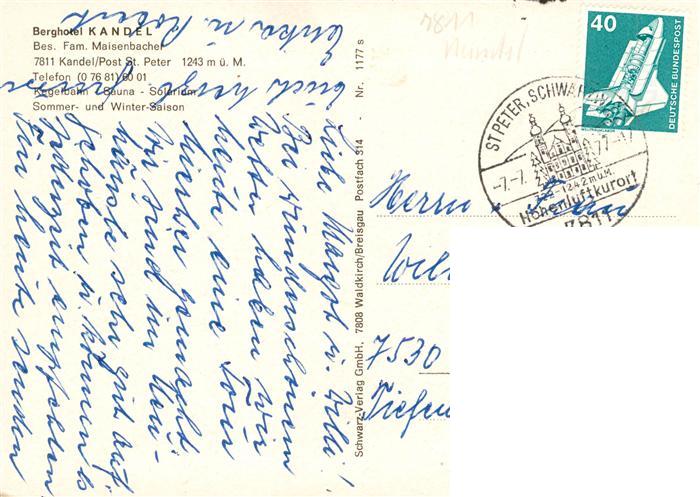 Berghotel KANDEL
Bes. Fam. Maisenbacher
7811 Kandel/Post St. Peter 1243 m ü. M.
Telefon (0 76 81) 60 01
Kegelbahn - Sauna - Solarium
Sommer- und Winter-Saison
Liebe Margot u. Willi!
Bei wunderschönem
Wetter haben wir
heute eine Tour
hierher gemacht
Wir sind im
hause sehr gut auf-
gehoben u. können es
jederzeit empfehlen
Ein heute senden
Euch herzl.
Erika u. Robert
Schwarz-Verlag GmbH, 7808 Waldkirch/Breisgau Postfach 314 - Nr. 1177 s
7811
40
DEUTSCHE BUNDESPOST
ST PETER, SCHWARZW
-7.-7. 77-17
1242 m ü.M.
Höhenluftkurort
7811
Herrn u.
7530